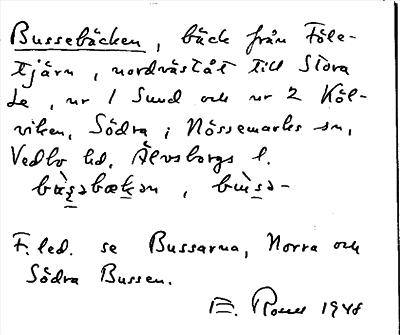 Bussebäcken, bäck från Föle-
tjärn, nordväståt till Stora
Le, nr 1 Sund och nr 2 Köl-
viken, Södra i Nössemarks sn,
Vedbo hd, Älvsborgs l.
F.led. se Bussarna, Norra och
Södra Bussen.
1948